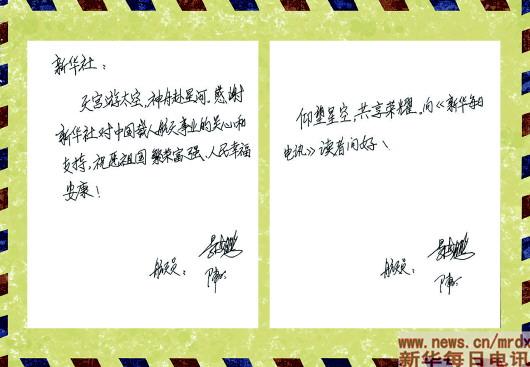 新华社：
天宫游太空，神舟赴星河。感谢
新华社对中国载人航天事业的关心和
支持，祝愿祖国繁荣富强、人民幸福
安康！
航天员：
景海鹏
陈冬
仰望星空，共享荣耀。向《新华每日
电讯》读者问好！
航天员：
景海鹏
陈冬
www.news.cn/mrdx
新华每日电讯